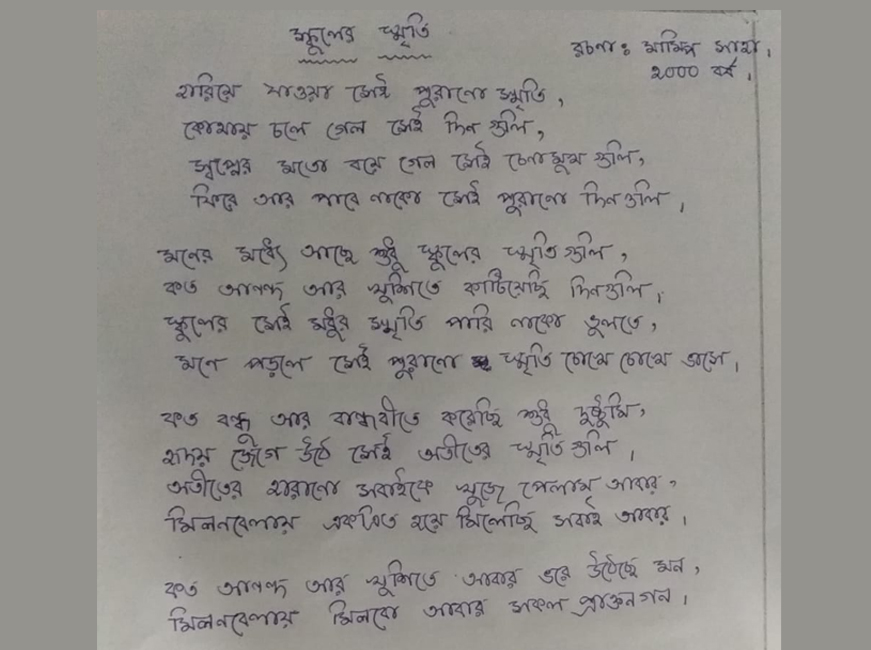 স্কুলের স্মৃতি
রচনা: মামিন্ন সাহা।
২০০০ বর্ষ।
হারিয়ে যাওয়া সেই পুরানো স্মৃতি,
কোথায় চলে গেল সেই দিন গুলি,
স্বপ্নের মতো বয়ে গেল সেই চেনামুখ গুলি,
ফিরে আর পাবে নাকো সেই পুরানো দিনগুলি।
মনের মধ্যে আছে শুধু স্কুলের স্মৃতি গুলি,
কত আনন্দ আর খুশিতে কাটিয়েছি দিনগুলি।
স্কুলের সেই মধুর স্মৃতি পারি নাকো ভুলতে,
মনে পড়লে সেই পুরানো স্মৃতি চোখে চোখে ভাসে।
কত বন্ধু আর বান্ধবীতে করেছি শুধু দুষ্টুমি,
হৃদয় জেগে উঠে সেই অতীতের স্মৃতি গুলি।
অতীতের হারানো সবাইকে খুজে পেলাম আবার,
মিলনবেলায় একত্রিত হয়ে মিলেছি সবাই আবার।
কত আনন্দ আর খুশিতে আবার ভরে উঠেছে মন,
মিলনবেলায় মিলবো আবার সকল প্রাক্তনগন।